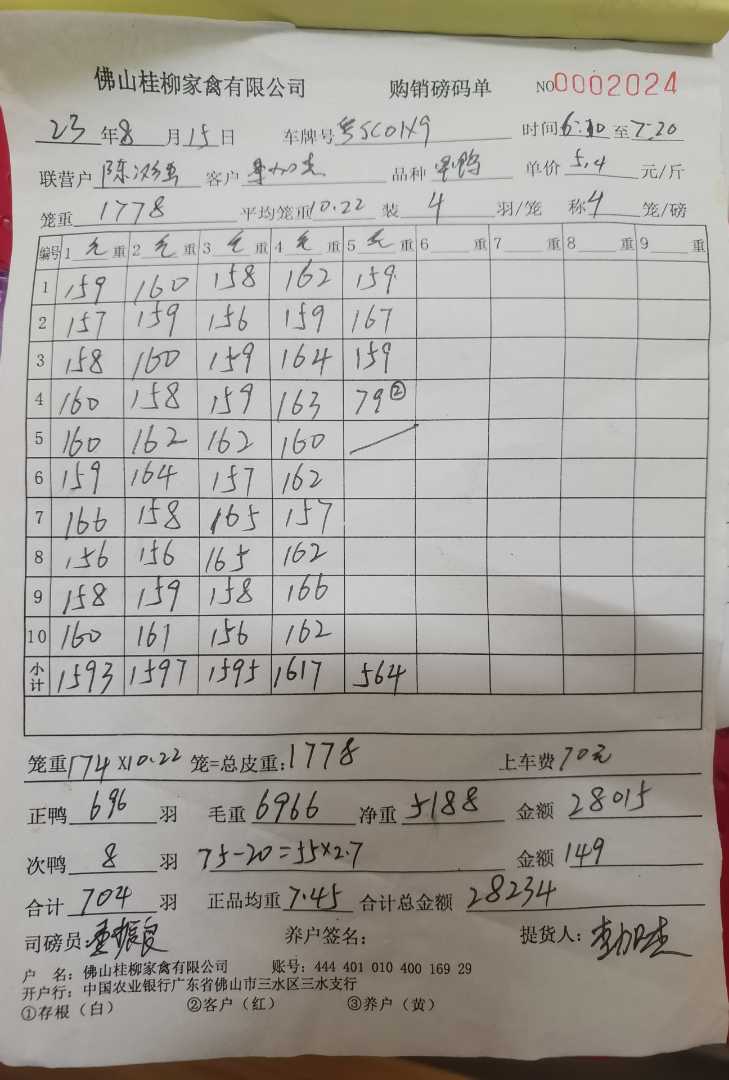 佛山桂柳家禽有限公司 购销磅码单 NO0002024
23年8月15日 车牌号 时间6:30至7:20
联营户 陈 客户 品种 鸭 单价5.4元/斤
笼重1778 平均笼重10.22 装4羽/笼 称4笼/磅
编号 1毛重 2毛重 3毛重 4毛重 5毛重 6 重 7 重 8 重 9 重
1 159 160 158 162 159
2 157 159 156 159 167
3 158 160 159 164 159
4 160 158 159 163 79②
5 160 162 162 160
6 159 164 157 162
7 166 158 165 157
8 156 156 165 162
9 158 159 158 166
10 160 161 156 162
小计 1593 1597 1595 1617 564
笼重174×10.22笼=总皮重:1778 上车费70元
正鸭696羽 毛重6966 净重5188 金额28015
次鸭8羽 75-20=55×2.7 金额149
合计704羽 正品均重7.45 合计总金额28234
司磅员: 养户签名: 提货人:
户 名:佛山桂柳家禽有限公司 账号:444 401 010 400 169 29
开户行:中国农业银行广东省佛山市三水区三水支行
①存根(白) ②客户(红) ③养户(黄)